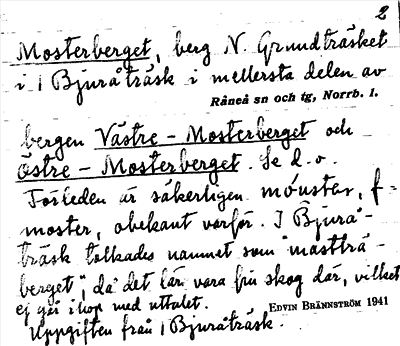 2
Mosterberget, berg N. Grundträsket
i 1 Bjuråträsk i mellersta delen av
Råneå sn och tg, Norrb. l.
bergen Västre-Mosterberget och
Östre-Mosterberget. Se d. o.
Förleden är säkerligen f-
moster, obekant varför. I Bjurå-
träsk tolkades namnet som "mastträ-
berget", då det lär vara fin skog där, vilket
ej går ihop med uttalet.
EDVIN BRÄNNSTRÖM 1941
Uppgiften från 1 Bjuråträsk.